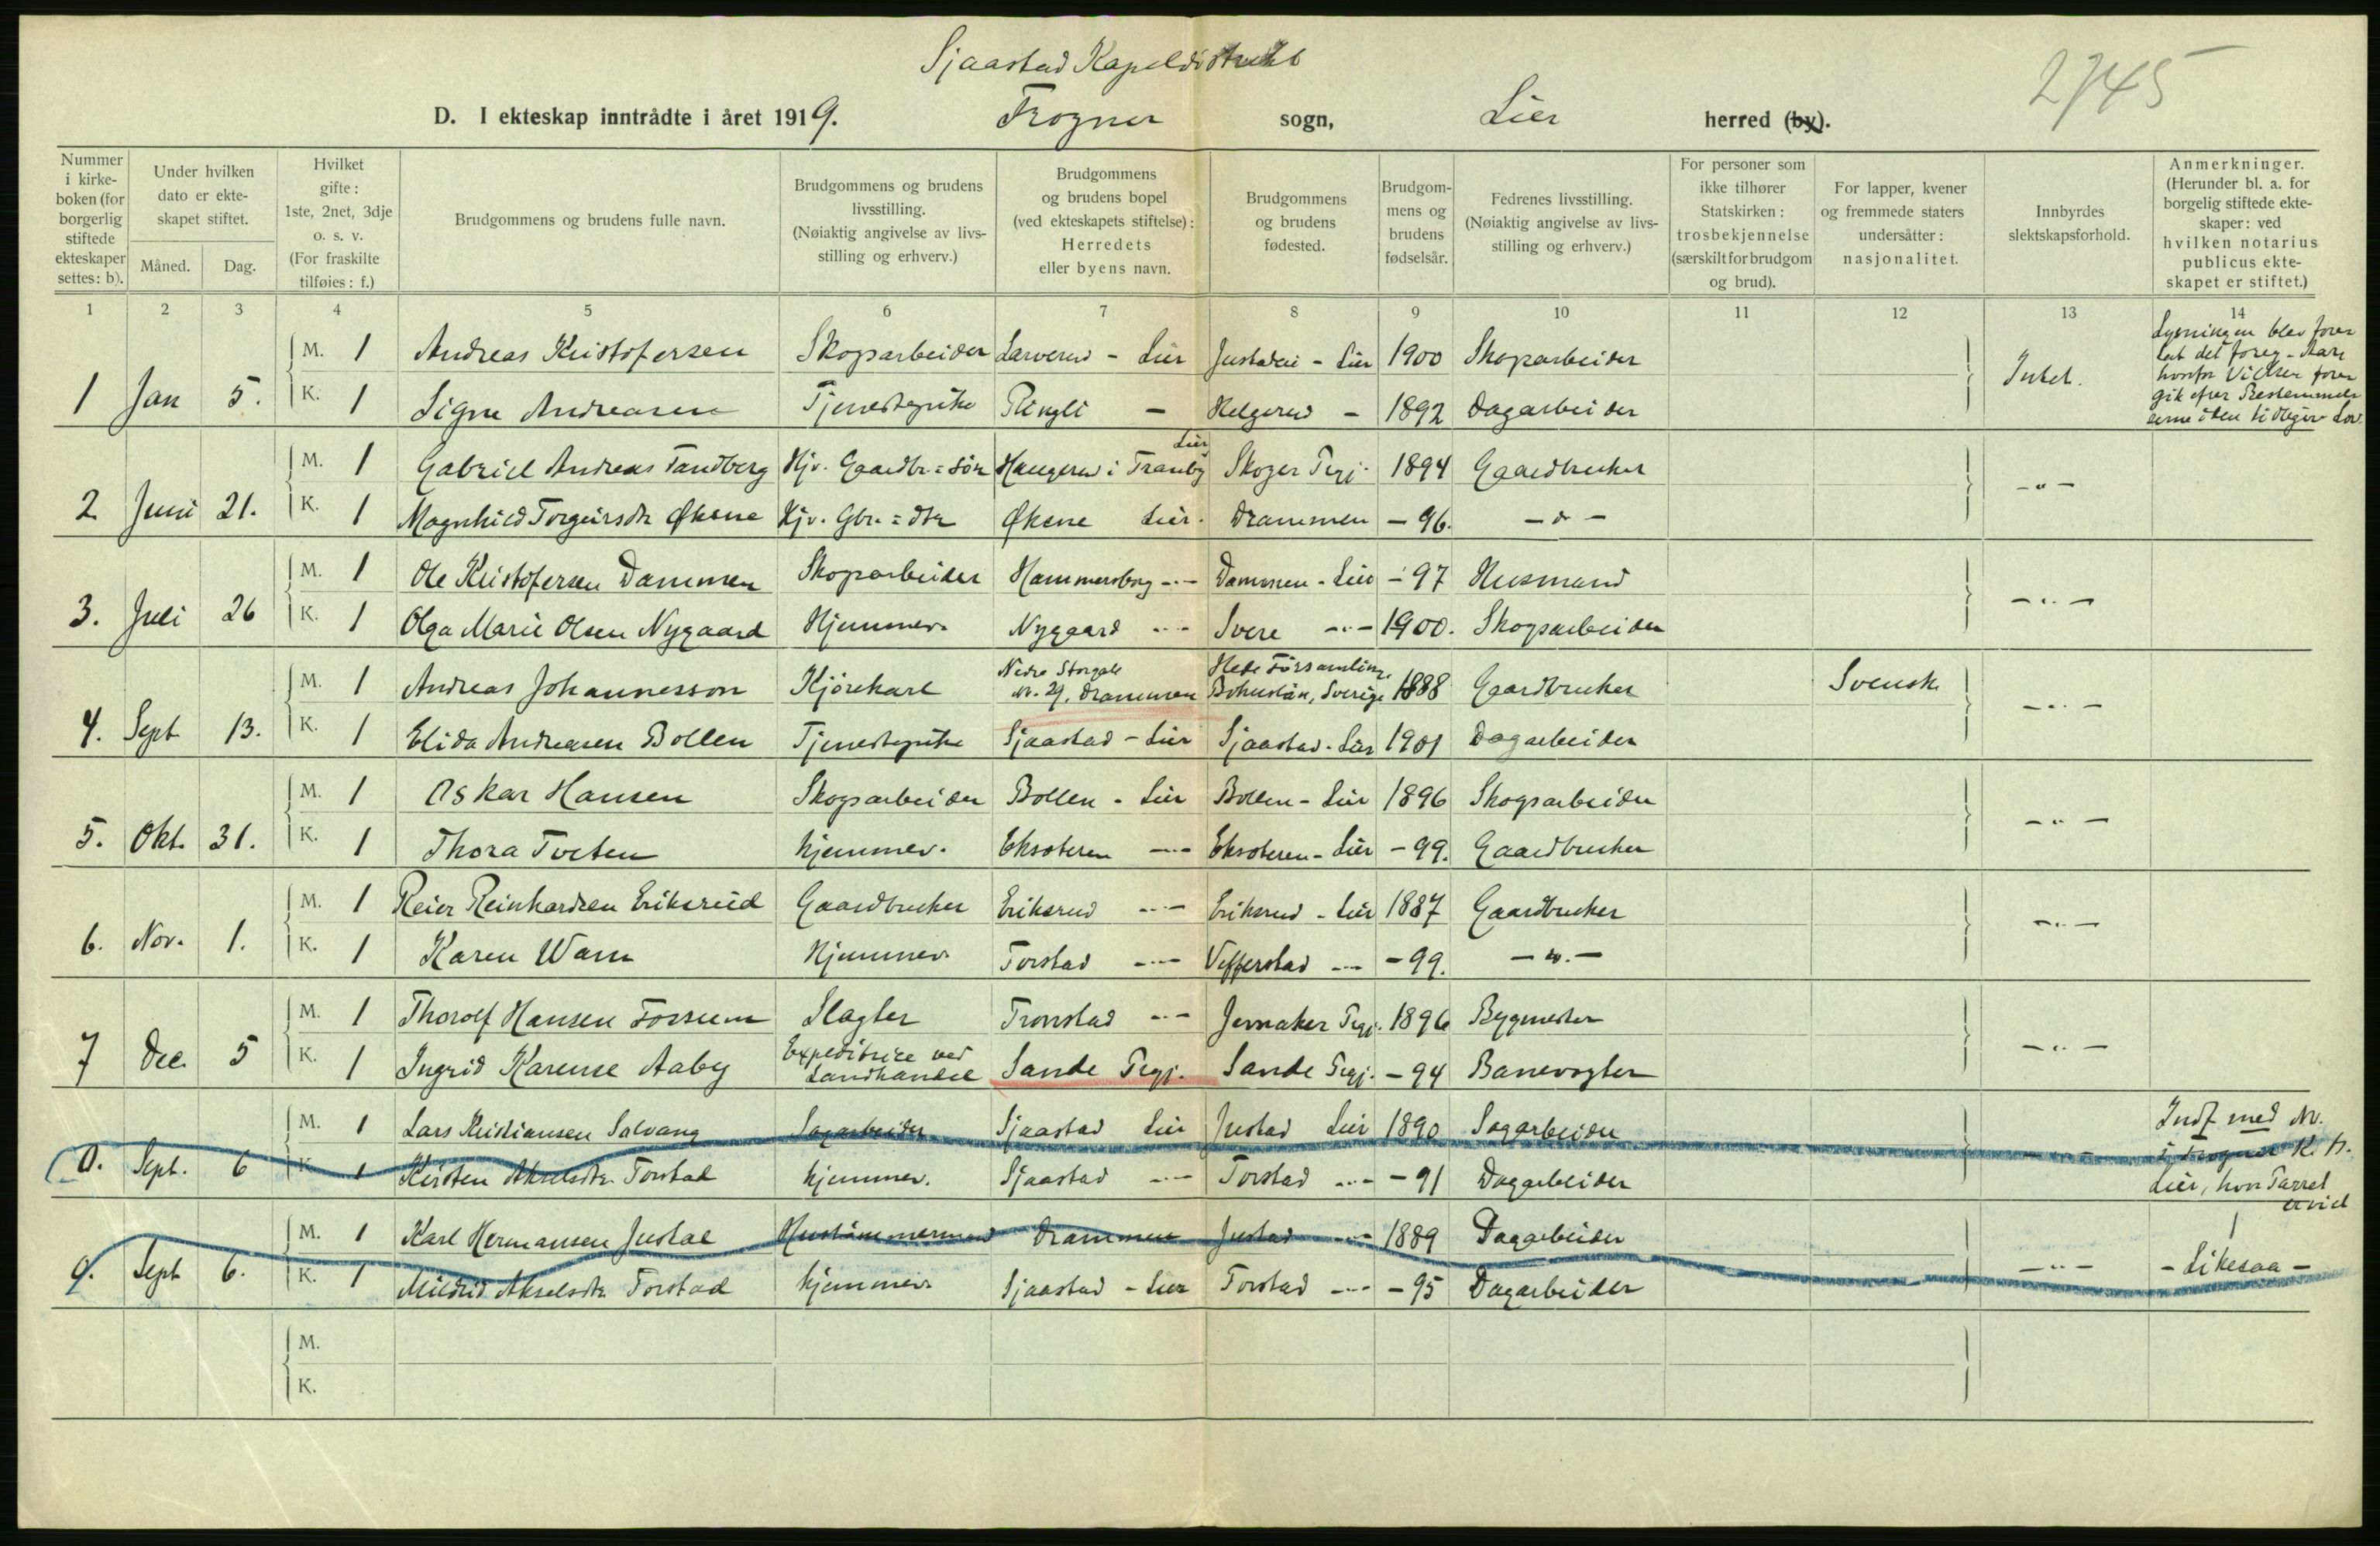 Sjaastad Kapeldistrikt
2745
D. I ekteskap inntrådte i året 1919. Frogner sogn, Lier herred (by).
Nummer i kirkeboken (for borgerlig stiftede ekteskaper settes: b).
Under hvilken dato er ekteskapet stiftet.
Måned. Dag.
Hvilket gifte: 1ste, 2net, 3dje o. s. v. (For fraskilte tilføies: f.)
Brudgommens og brudens fulle navn.
Brudgommens og brudens livsstilling. (Nøiaktig angivelse av livsstilling og erhverv.)
Brudgommens og brudens bopel (ved ekteskapets stiftelse): Herredets eller byens navn.
Brudgommens og brudens fødested.
Brudgommens og brudens fødselsår.
Fedrenes livsstilling. (Nøiaktig angivelse av livsstilling og erhverv.)
For personer som ikke tilhører Statskirken: trosbekjennelse (særskilt for brudgom og brud).
For lapper, kvener og fremmede staters undersåtter: nasjonalitet.
Innbyrdes slektskapsforhold.
Anmerkninger. (Herunder bl. a. for borgelig stiftede ekteskaper: ved hvilken notarius publicus ekteskapet er stiftet.)
1 2 3 4 5 6 7 8 9 10 11 12 13 14
1 Jan 5. M. 1 Andreas Kristofersen Skogsarbeider Larverud - Lier Justadeie - Lier 1900 Skogsarbeider Intet. Lysningen blev foretat det foreg. Aar, hvorfor Vielsen foregik efter Bestemmelserne i den tidligere Lov.
K. 1 Signe Andreasen Tjenestepike Ringli - Helgerud - 1892 Dagarbeider
2 Juni 21. M. 1 Gabriel Andreas Tandberg Hjv. Gaardbr.=søn Haugerud i Tranby Lier Skoger Prgj. 1894 Gaardbruker -"-
K. 1 Magnhild Torgeirsdtr Øksne Hjv. Gbr.=dtr Øksne Lier. Drammen - 96. -"-
3. Juli 26 M. 1 Ole Kristofersen Dammen Skogsarbeider Hammersborg -"- Dammen - Lier - 97 Husmand -"-
K. 1 Olga Marie Olsen Nygaard Hjemmev. Nygaard -"- Svere -"- 1900. Skogsarbeider
4. Sept 13. M. 1 Andreas Johannesson Kjørekarl Nedre Storgate nr. 29, Drammen Hede Församling, Bohuslän, Sverige 1888 Gaardbruker Svensk -"-
K. 1 Elida Andreasen Bollen Tjenestepike Sjaastad - Lier Sjaastad - Lier 1901 Dagarbeider
5. Okt. 31. M. 1 Oskar Hansen Skogsarbeider Bollen - Lier Bollen - Lier 1896 Skogsarbeider -"-
K. 1 Thora Tveten hjemmev. Eksoteren -"- Eksoteren - Lier - 99. Gaardbruker
6. Nov. 1. M. 1 Reier Reinhardsen Eriksrud Gaardbruker Eriksrud -"- Eriksrud - Lier 1887 Gaardbruker -"-
K. 1 Karen Wam Hjemmev. Torstad -"- Vefferstad -"- - 99. -"-
7 Dec. 5 M. 1 Thorolf Hansen Forsum Slagter Tronstad -"- Jevnaker Prgj. 1896 Bygmester -"-
K. 1 Ingrid Karense Aaby Expeditrice ved Landhandel Sande Prgj. Sande Prgj. - 94 Banevogter
8. Sept. 6 M. 1 Lars Kristiansen Solvang Sagarbeider Sjaastad Lier Justad Lier 1890 Sagarbeider -"- Indf med Nr. i Frogner K. B. Lier, hvor Parret er viet
K. 1 Kirsten Akselsdtr. Torstad hjemmev. Sjaastad -"- Torstad -"- - 91 Dagarbeider
9. Sept 6. M. 1 Karl Hermansen Justad Hustømmermand Drammen Justad -"- 1889 Dagarbeider -"- - Likesaa -
K. 1 Mildrid Akselsdtr Torstad hjemmev. Sjaastad - Lier Torstad -"- - 95 Dagarbeider
M.
K.